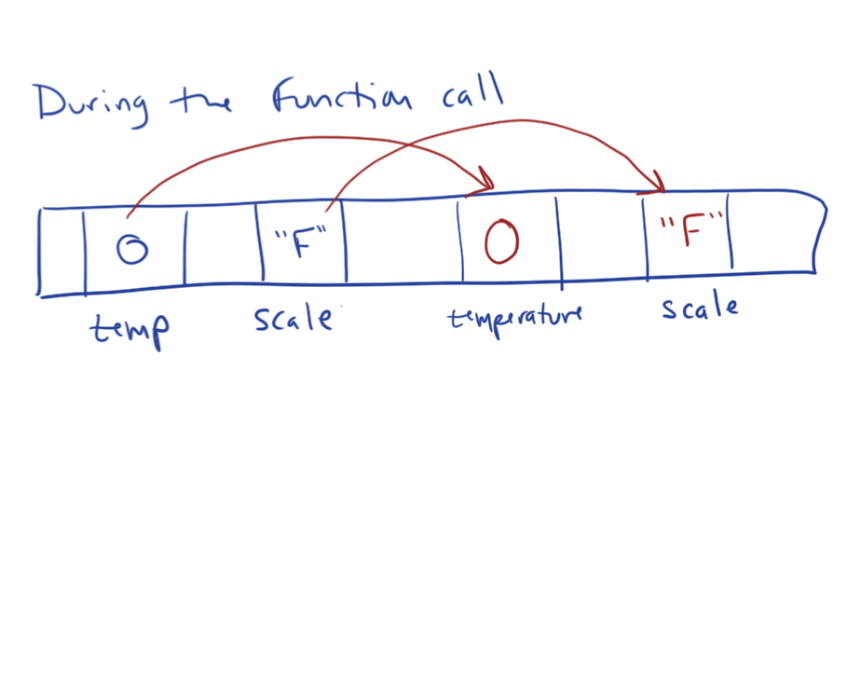 During the function call
0 "F" 0 "F"
temp scale temperature scale